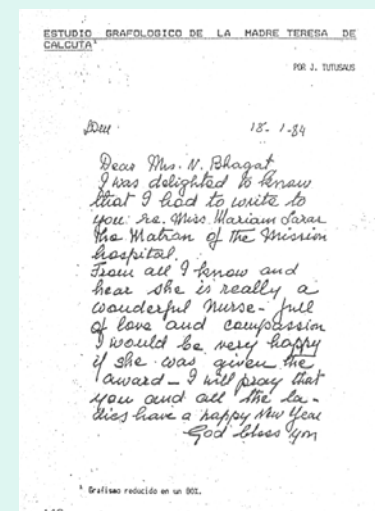 ESTUDIO GRAFOLOGICO DE LA MADRE TERESA DE
CALCUTA¹
POR J. TUTUSAUS
18-1-84
Dear Mrs. N. Bhagat
I was delighted to know
that I had to write to
you: re. Miss Mariam
The Matran of the Mission
hospital.
From all I know and
hear she is really a
wonderful nurse - full
of love and compassion
I would be very happy
if she was given the
award - I will pray that
you and all the la-
dies have a happy New Year
God bless you
¹ Grafismo reducido en un